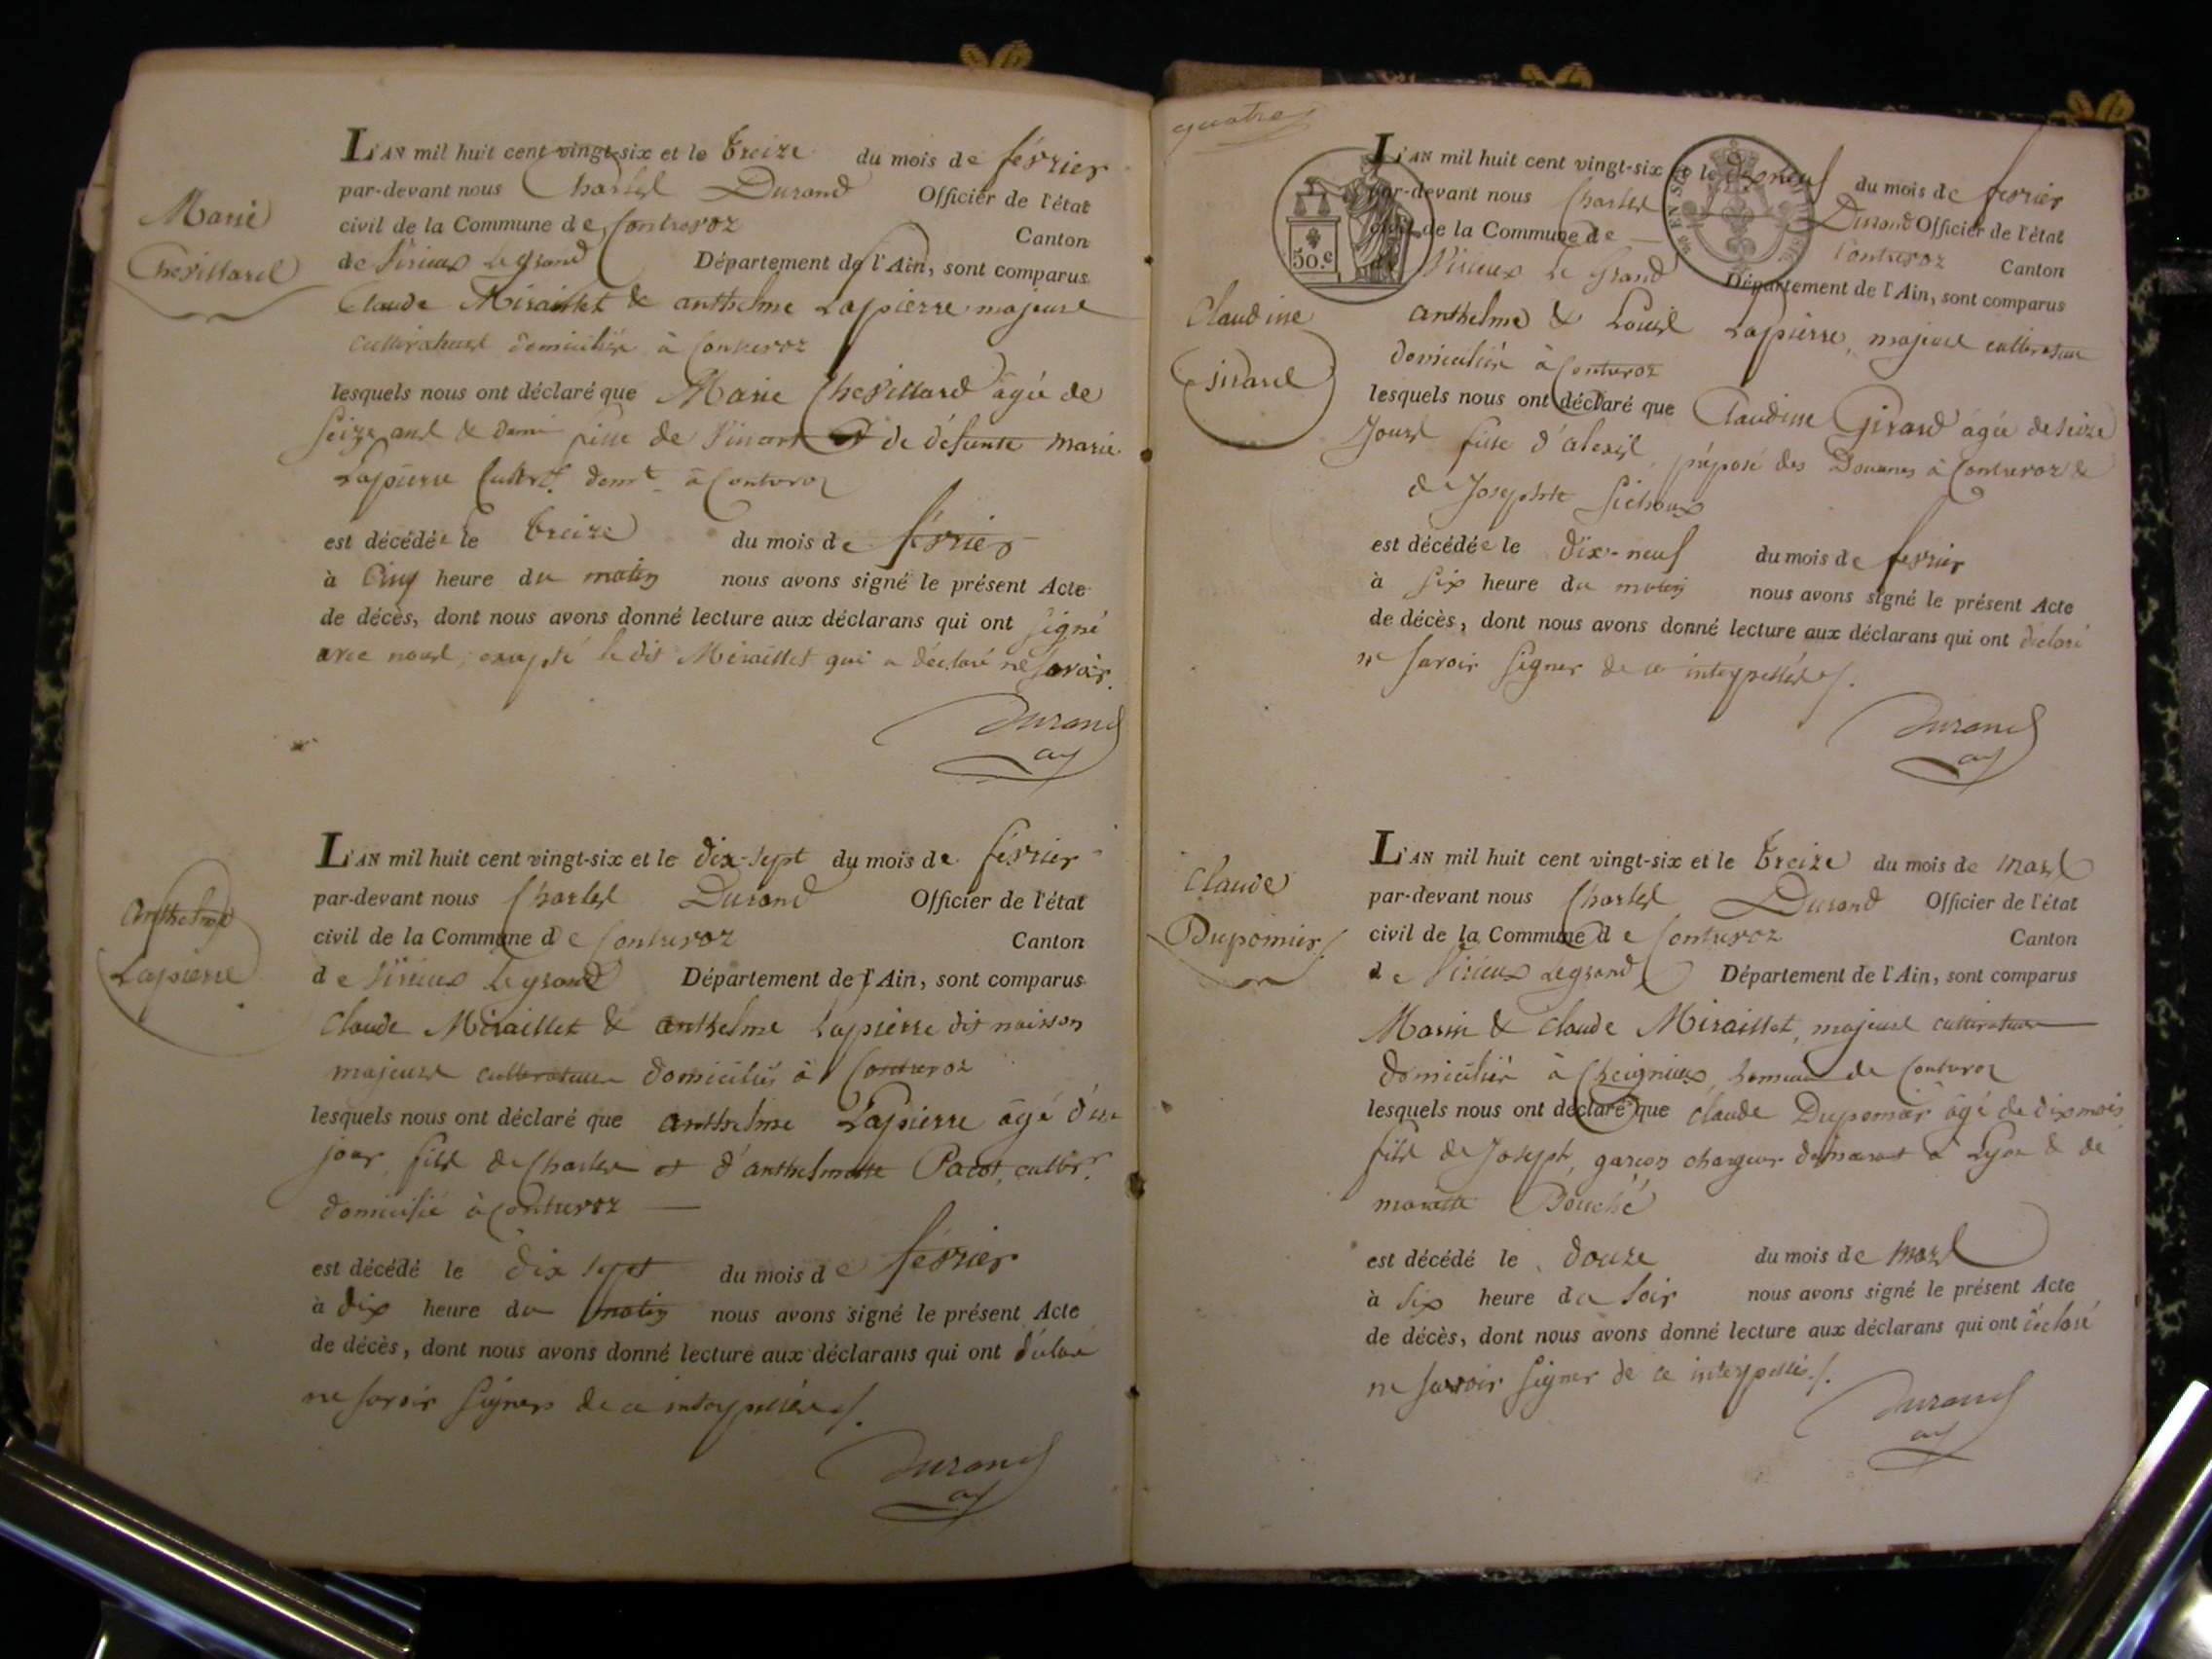 Marie
Chevillard
L'AN mil huit cent vingt-six et le treize du mois de février
par-devant nous Charles Durand Officier de l'état
civil de la Commune de Contrevoz Canton
de Virieux Le grand Département de l'Ain, sont comparus
Claude Miraillet & anthelme Lapierre majeurs
cultivateurs domiciliés à Contrevoz
lesquels nous ont déclaré que Marie Chevillard âgée de
seize ans & demi fille de Vincent et de défunte Marie
Lapierre Cultrs. domt. à Contrevoz
est décédée le treize du mois de février
à Cinq heure du matin nous avons signé le présent Acte
de décès, dont nous avons donné lecture aux déclarans qui ont signé
avec nous, excepté le dit Miraillet qui a déclaré ne savoir.
Durand
ay
anthelme
Lapierre
L'AN mil huit cent vingt-six et le dix-sept du mois de février
par-devant nous Charles Durand Officier de l'état
civil de la Commune de Contrevoz Canton
de Virieux Le grand Département de l'Ain, sont comparus
Claude Miraillet & anthelme Lapierre dit
majeurs cultivateurs domiciliés à Contrevoz
lesquels nous ont déclaré que anthelme Lapierre âgé d'un
jour, fils de Charles et d'anthelmette Pacot, cultivr.
domicilié à Contrevoz —
est décédé le dix sept du mois de février
à dix heure du matin nous avons signé le présent Acte
de décès, dont nous avons donné lecture aux déclarans qui ont déclaré
ne savoir signer de ce interpellés /.
Durand
ay
quatre
50.c
EN SUS
Claudine
Girard
L'AN mil huit cent vingt-six et le dix neuf du mois de fevrier
par-devant nous Charles Durand Officier de l'état
civil de la Commune de — Contrevoz Canton
de Virieux Le Grand Département de l'Ain, sont comparus
anthelme & Louis Lapierre, majeurs cultivateurs
domiciliés à Contrevoz
lesquels nous ont déclaré que Claudine Girard âgée de seize
Jours fille d'alexis, préposé des Douanes à Contrevoz &
de Josephte
est décédée le dix-neuf du mois de fevrier
à six heure du matin nous avons signé le présent Acte
de décès, dont nous avons donné lecture aux déclarans qui ont déclaré
ne savoir signer de ce interpellés /.
Durand
ay
Claude
Dupomier /.
L'AN mil huit cent vingt-six et le treize du mois de mars
par-devant nous Charles Durand Officier de l'état
civil de la Commune de Contrevoz Canton
de Virieux Le grand Département de l'Ain, sont comparus
Marin & Claude Miraillet, majeurs cultivateurs
domiciliés à Cheignieux, hameau de Contrevoz
lesquels nous ont déclaré que Claude Dupomier âgé de dix mois,
fils de Joseph, garçon chargeur demeurant à Lyon & de
mariette Bouché
est décédé le douze du mois de mars
à six heure du soir nous avons signé le présent Acte
de décès, dont nous avons donné lecture aux déclarans qui ont déclaré
ne savoir signer de ce interpellés /.
Durand
ay